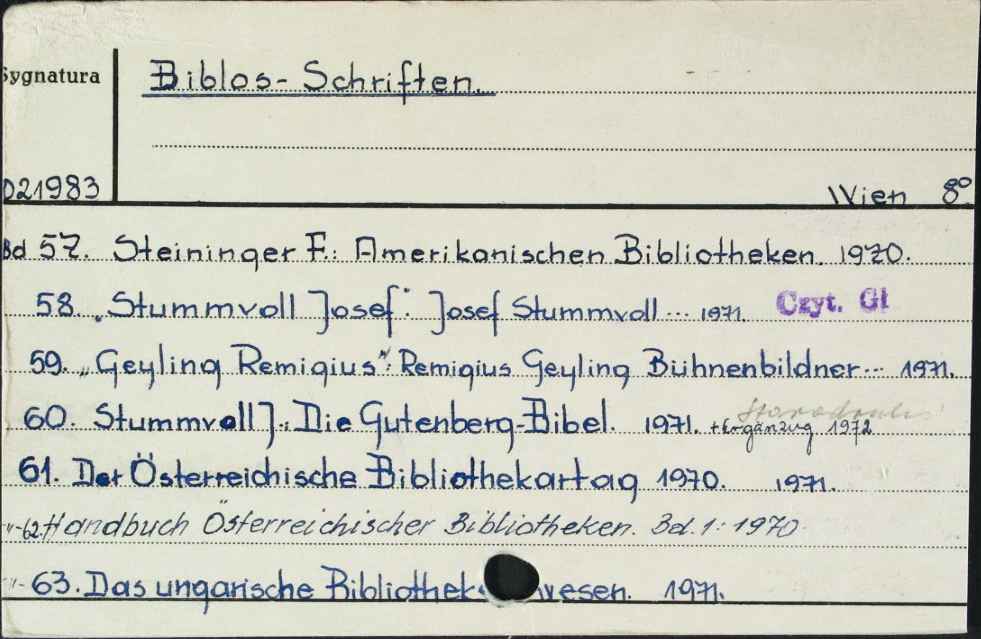 Sygnatura
Biblos-Schriften.
021983
Wien 8°
Bd 57. Steininger F.: Amerikanischen Bibliotheken. 1970.
58. „Stummvoll Josef": Josef Stummvoll ... 1971. Czyt. Gł
59. „Geyling Remigius": Remigius Geyling Bühnenbildner... 1971.
60. Stummvoll J.: Die Gutenberg-Bibel. 1971. + Ergänzug 1972
61. Der Österreichische Bibliothekartag 1970. 1971.
-"- 62. Handbuch Österreichischer Bibliotheken. Bd. 1: 1970
-"- 63. Das ungarische Bibliothek wesen. 1971.